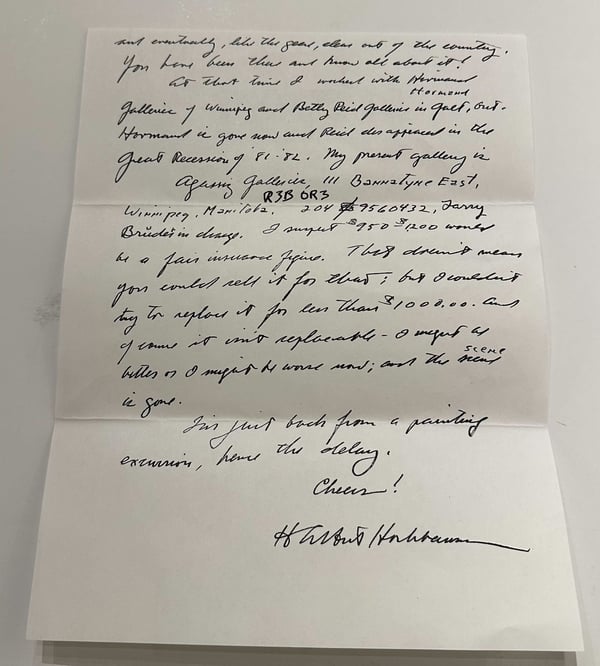 and eventually, like the geese, clear out of the country.
You have been there and know all about it!
At that time I worked with Hormand
Hormand
Galleries of Winnipeg and Betty Reid Galleries in Galt, but
Hormand is gone now and Reid disappeared in the
Great Recession of '81-'82. My present gallery is
Agassiz Galleries, 111 Bannatyne East,
R3B 0R3
Winnipeg, Manitoba. 204 9560432, Larry
Brüdes in charge. I suspect $950 $1200 would
be a fair insurance figure. That doesn't mean
you could sell it for that; but I wouldn't
try to replace it for less than $1000.00. And
of course it isn't replaceable - I might be
better or I might be worse now; and the scene
scene
is gone.
I'm just back from a painting
excursion, hence the delay.
Cheers!
H Albert Hochbaum